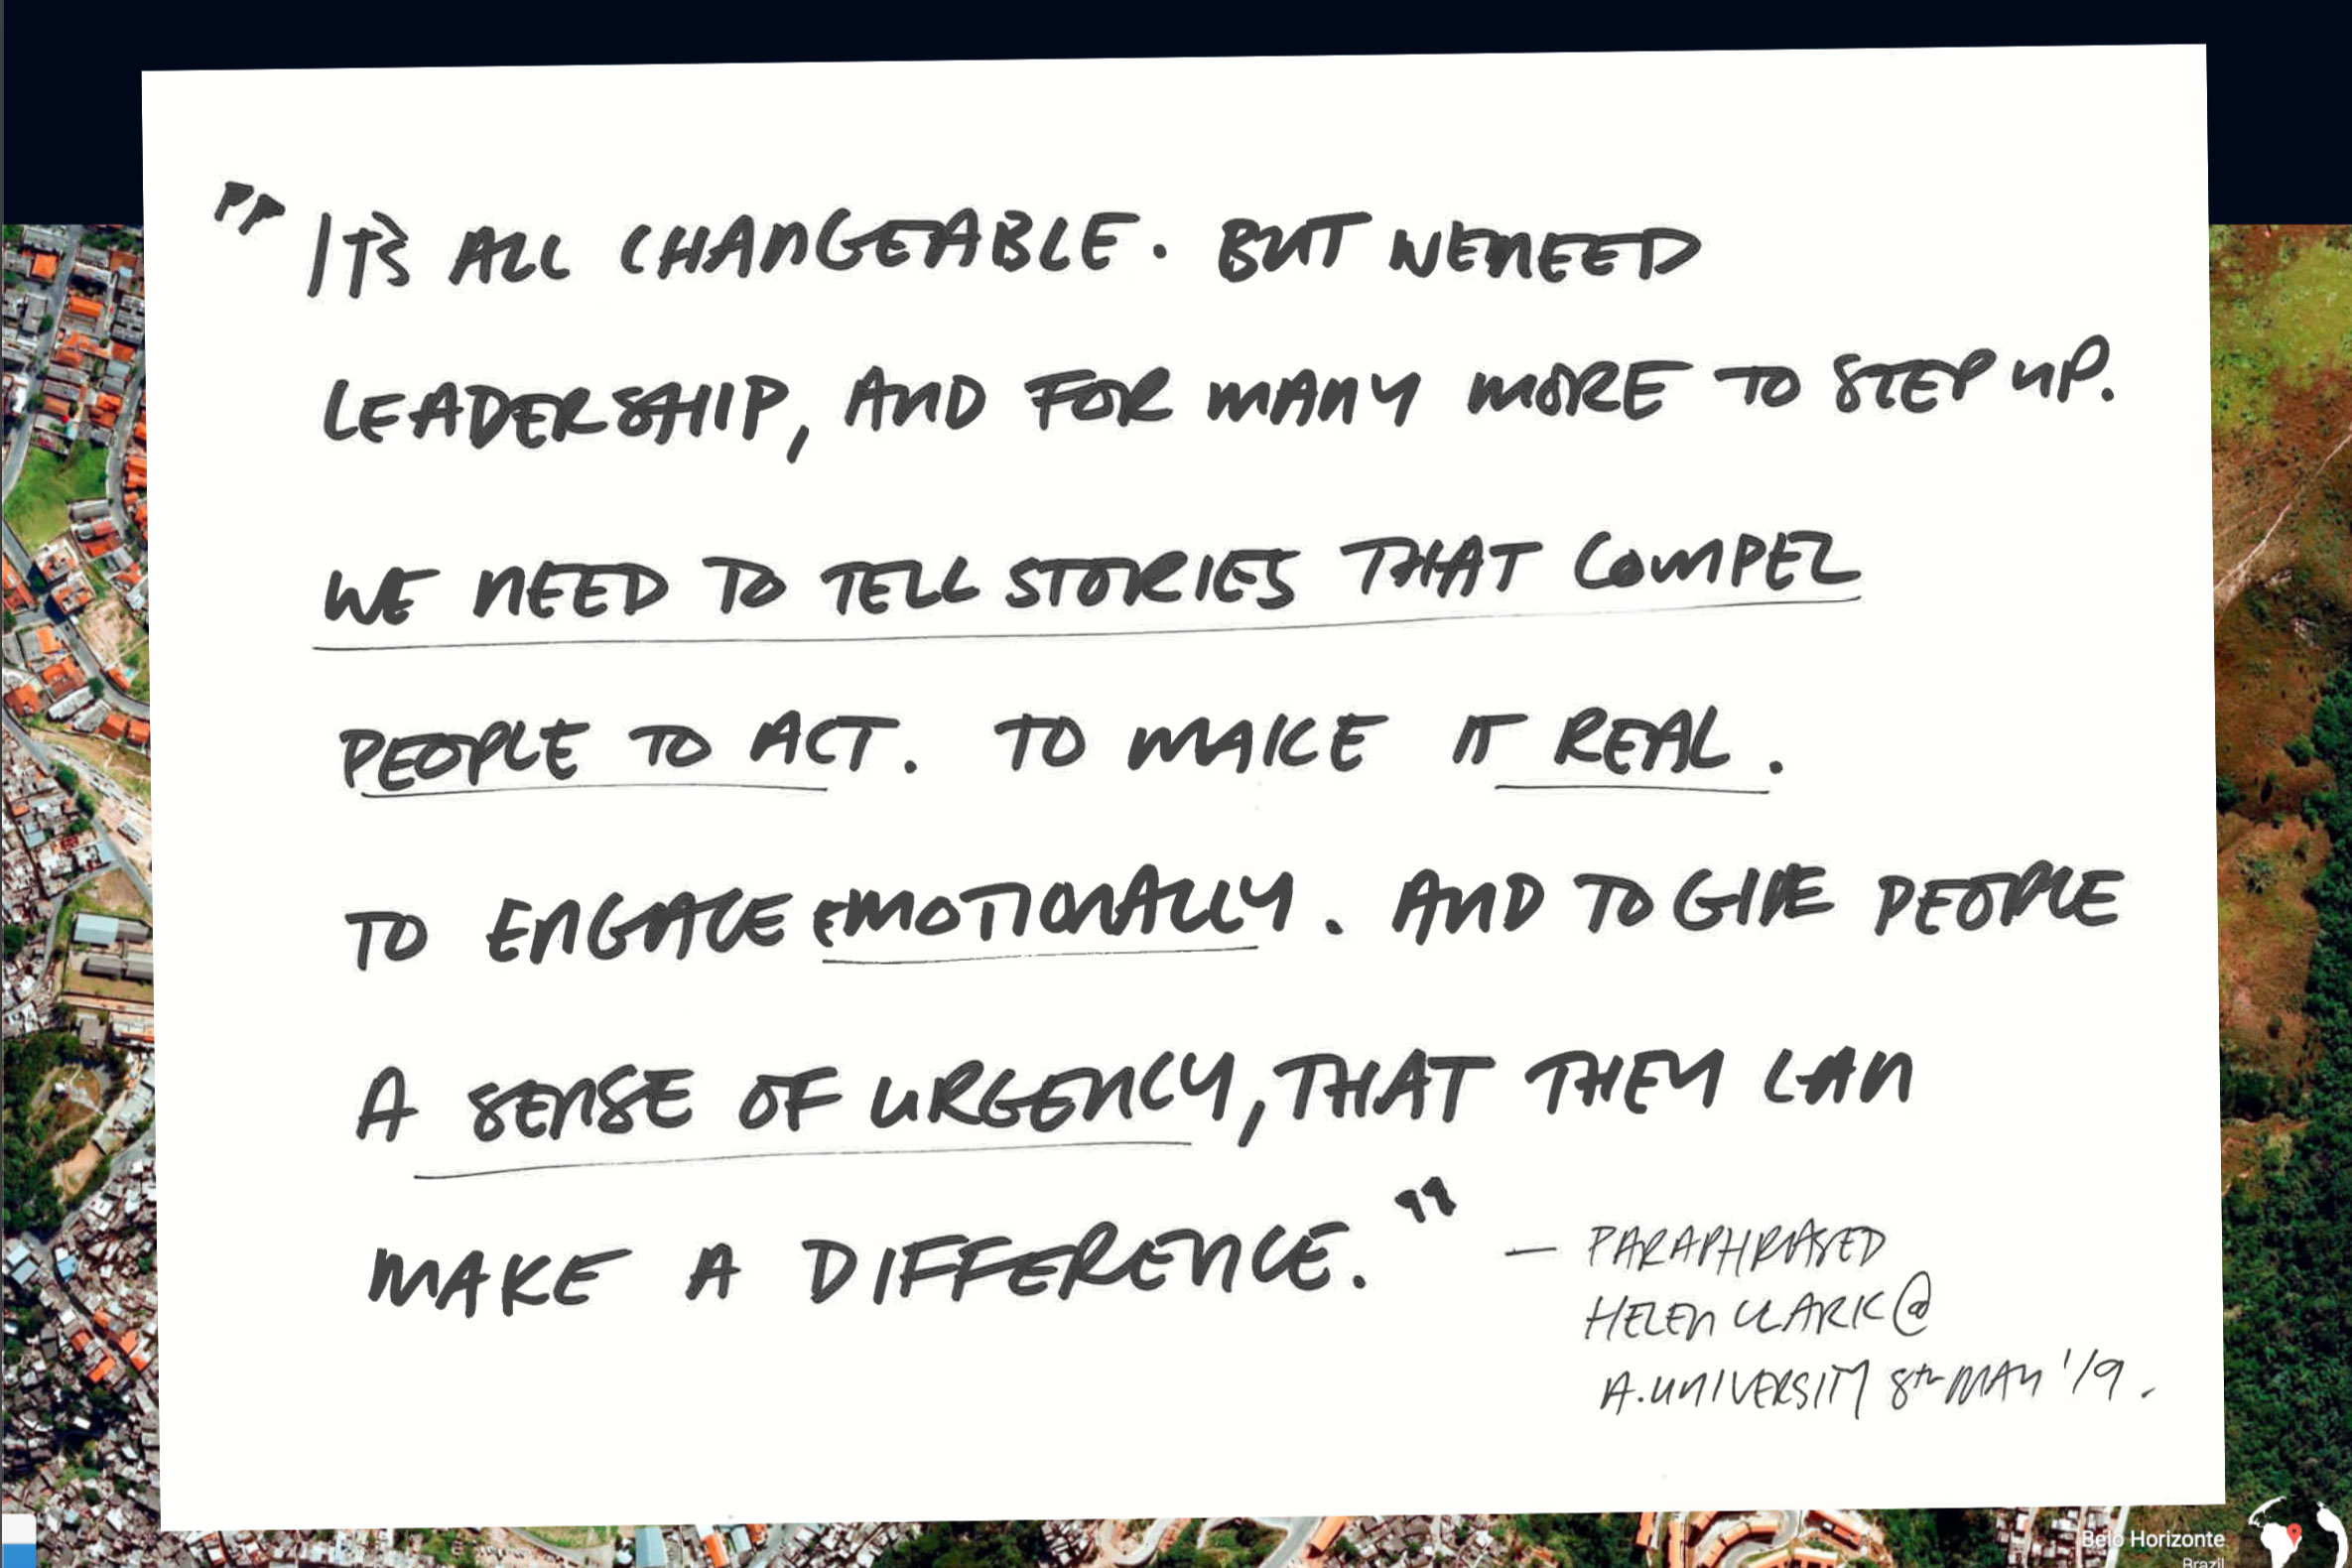 "IT'S ALL CHANGEABLE. BUT WE NEED
LEADERSHIP, AND FOR MANY MORE TO STEP UP.
WE NEED TO TELL STORIES THAT COMPEL
PEOPLE TO ACT. TO MAKE IT REAL.
TO ENGAGE EMOTIONALLY. AND TO GIVE PEOPLE
A SENSE OF URGENCY, THAT THEY CAN
MAKE A DIFFERENCE."
— PARAPHRASED
HELEN CLARK @
A.UNIVERSITY 8th MAY '19.
Belo Horizonte
Brazil